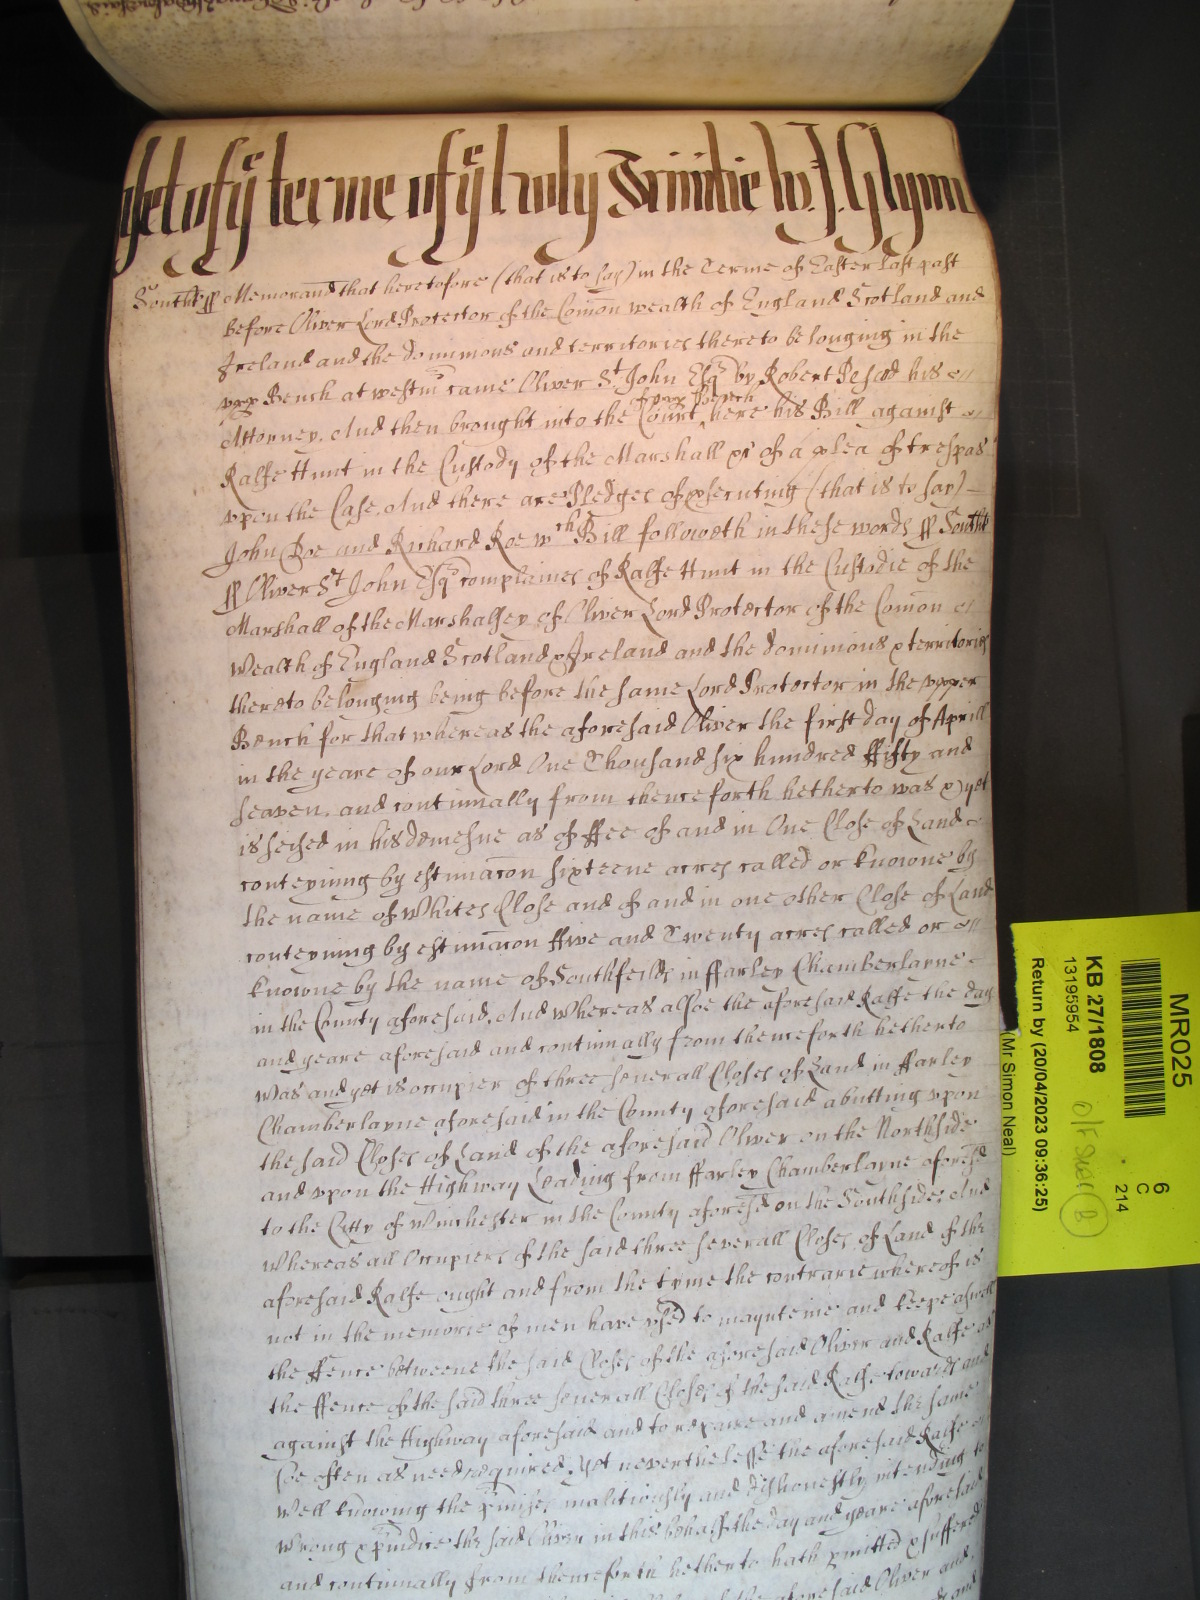 yet of yͤ terme of yͤ holy Trinitie by J. Glynn
South ff Memorand that heretofore (that is to say) in the Terme of Easter last past
before Oliver Lord Protector of the Comon wealth of England Scotland and
Ireland and the dominions and territories thereto belonging in the
vpp Bench at westm came Oliver St John Esqr by Robert Pescod his
Attorney. And then brought into the Court here his Bill against
vpp Bench
Ralfe Hunt in the Custody of the Marshall &c of a plea of trespas
vpon the Case. And there are Pledges of psecuting (that is to say)
John Doe and Richard Roe wch Bill followeth in these words ff South
ff Oliver St John Esqr complaines of Ralfe Hunt in the Custodie of the
Marshall of the Marshalsey of Oliver Lord Protector of the Comon
wealth of England Scotland & Ireland and the dominions & territories
thereto belonging being before the same Lord Protector in the vpper
Bench for that whereas the aforesaid Oliver the first day of Aprill
in the yeare of our Lord One Thousand six hundred ffifty and
seaven. and continually from thenceforth hetherto was & yet
is seised in his demesne as of ffee of and in One Close of Land
conteyning by estimacon sixteene acres called or knowne by
the name of Whites Close and of and in one other Close of Land
conteyning by estimacon ffive and Twenty acres called or
knowne by the name of Southfeilds in ffarley Chamberlayne
in the County aforesaid. And whereas alsoe the aforesaid Ralfe the day
and yeare aforesaid and continually from thenceforth hetherto
was and yet is occupier of three severall Closes of Land in ffarley
Chamberlayne aforesaid in the County aforesaid abutting vpon
the said Closes of Land of the aforesaid Oliver on the Northside
and vpon the Highway Leading from ffarley Chamberlayne aforesd
to the Citty of Winchester in the County aforesd on the Southside. And
whereas all Occupiers of the said three severall Closes of Land of the
aforesaid Ralfe ought and from the tyme the contrarie whereof is
not in the memorie of men have vsed to maynteine and keepe aswell
the ffence betweene the said Closes of the aforesaid Oliver and Ralfe as
the ffence of the said three severall Closes of the said Ralfe towards and
against the Highway aforesaid and to repaire and amend the same
soe often as need required. Yet neverthelesse the aforesaid Ralfe
well knowing the pmises malitiously and dishonestly intending to
wrong & piudice the said Oliver in this behalfe the day and yeare aforesaid
and continually from thenceforth hetherto hath pmitted & suffered
the aforesaid Oliver and
MR025
6
C
214
KB 27/1808
13195954
Return by (20/04/2023 09:36:25)
(Mr Simon Neal)